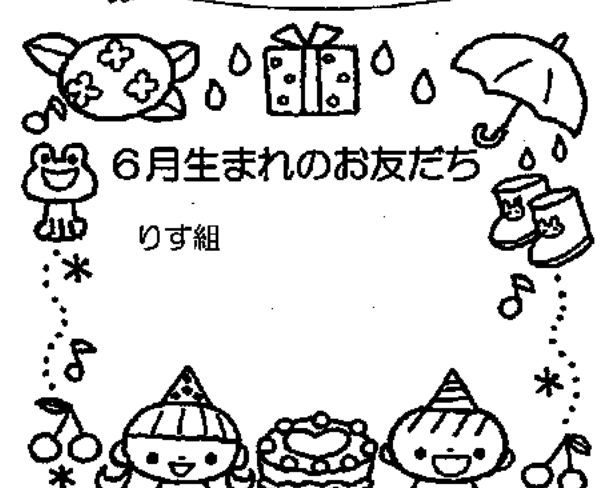 ６月生まれのお友だち
りす組